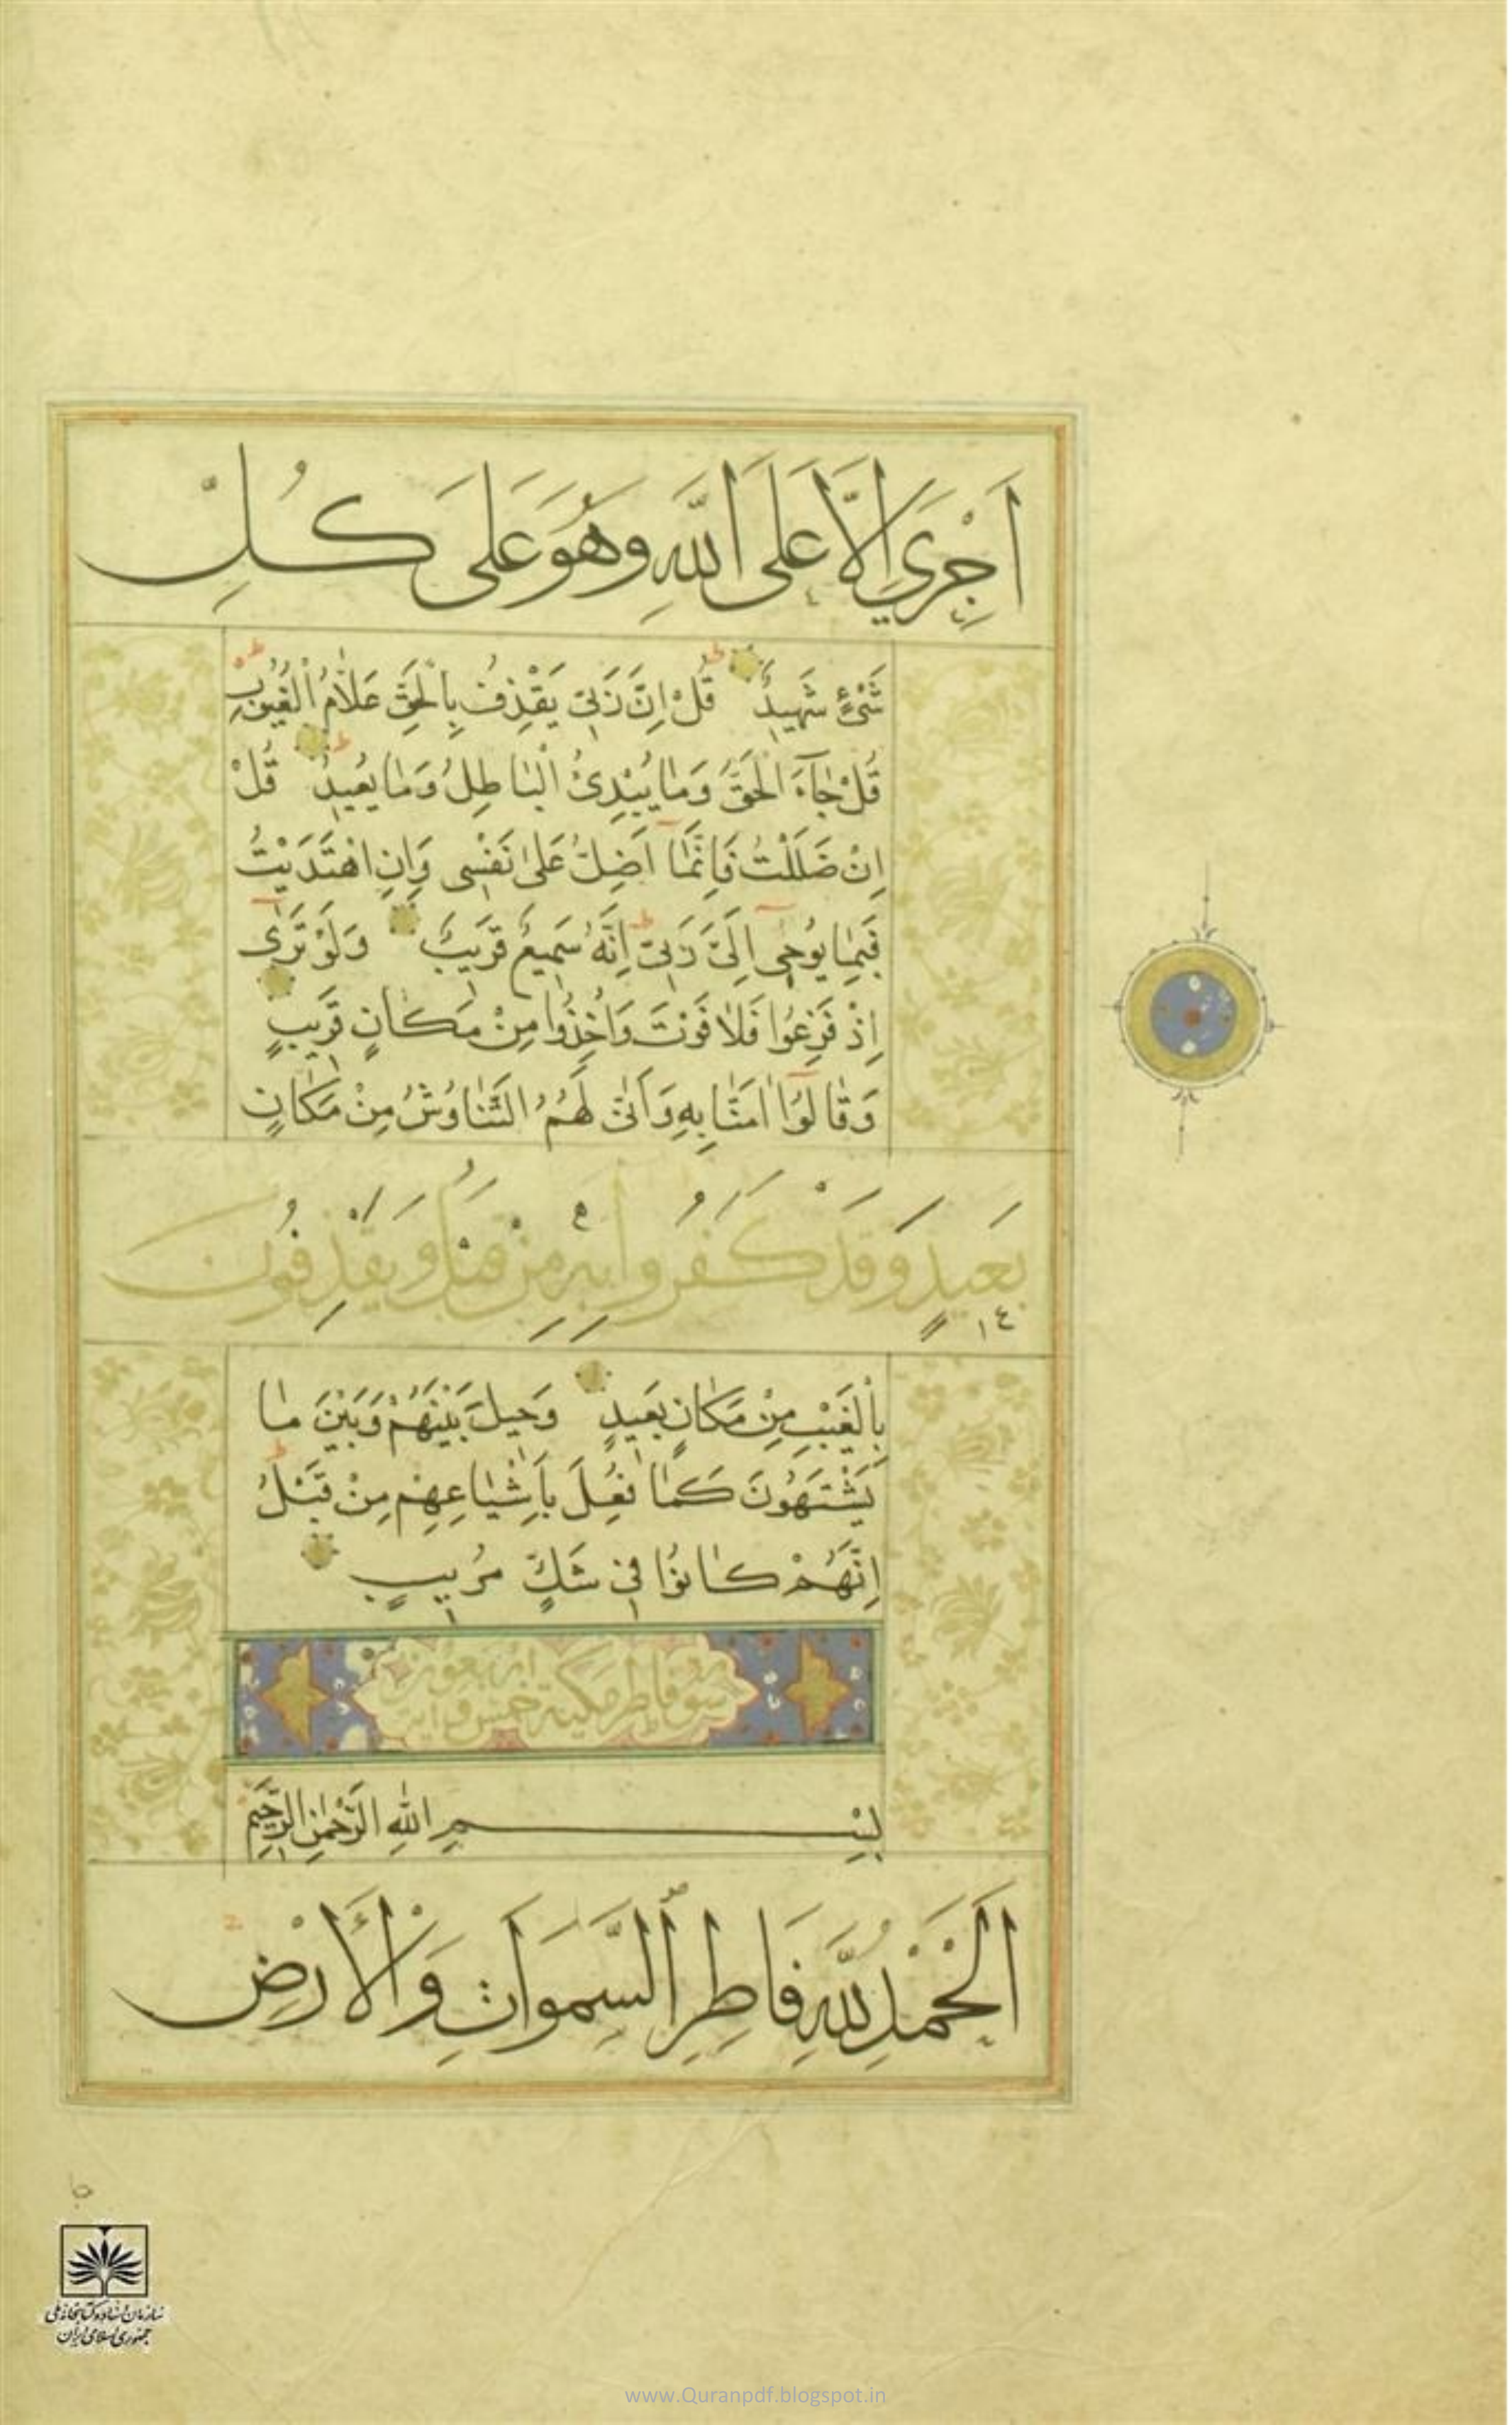 اَجْرِيَ اِلَّا عَلَى اللَّهِ وَهُوَ عَلَى كُلِّ
شَيْءٍ شَهِيدٌ قُلْ اِنَّ رَبّى يَقْذِفُ بِالْحَقِّ عَلَّامُ الْغُيُوبِ
قُلْ جَآءَ الْحَقُّ وَمَا يُبْدِئُ الْبَاطِلُ وَمَا يُعِيدُ قُلْ
اِنْ ضَلَلْتُ فَاِنَّمَا اَضِلُّ عَلٰى نَفْسى وَاِنِ اهْتَدَيْتُ
فَبِمَا يُوحٰى اِلَىَّ رَبّى اِنَّهُ سَمِيعٌ قَرِيبٌ وَلَوْ تَرٰى
اِذْ فَزِعُوا فَلَا فَوْتَ وَاُخِذُوا مِنْ مَكَانٍ قَرِيبٍ
وَقَالُوا اٰمَنَّا بِهِ وَاَنّٰى لَهُمُ التَّنَاوُشُ مِنْ مَكَانٍ
بَعِيدٍ وَقَدْ كَفَرُوا بِهِ مِنْ قَبْلُ وَيَقْذِفُونَ
بِالْغَيْبِ مِنْ مَكَانٍ بَعِيدٍ وَحِيلَ بَيْنَهُمْ وَبَيْنَ مَا
يَشْتَهُونَ كَمَا فُعِلَ بِاَشْيَاعِهِمْ مِنْ قَبْلُ
اِنَّهُمْ كَانُوا فى شَكٍّ مُرِيبٍ
فاطر مكية خمس و اربعون
بِسْمِ اللهِ الرَّحْمٰنِ الرَّحِيمِ
اَلْحَمْدُ لِلَّهِ فَاطِرِ السَّمَوَاتِ وَالْأَرْضِ
جا
سازمان اسناد و کتابخانه ملی
جمهوری اسلامی ایران
www.Quranpdf.blogspot.in